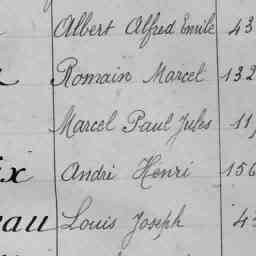 Albert Alfred Emile 43
Romain Marcel 132
Marcel Paul Jules 11
ix André Henri 156
eau Louis Joseph 43